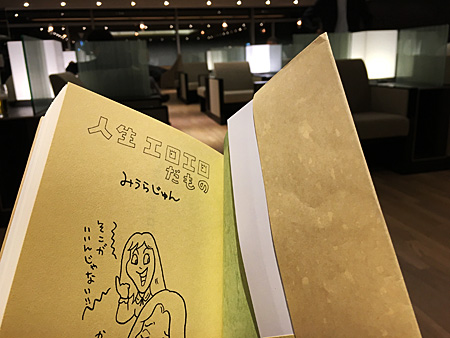 人生 エロエロ
だもの
みうらじゅん
そこが
いいんじゃない!!
か